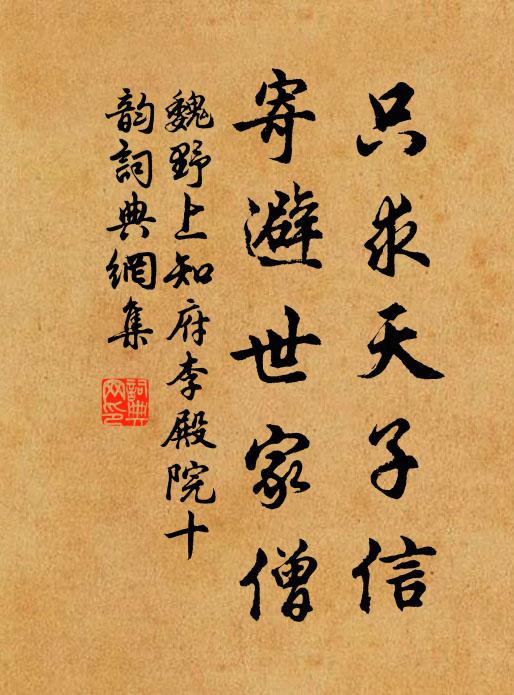 只求天子信
寄避世家僧
魏野上知府李殿院十
韵詞典網集
詞典
网印